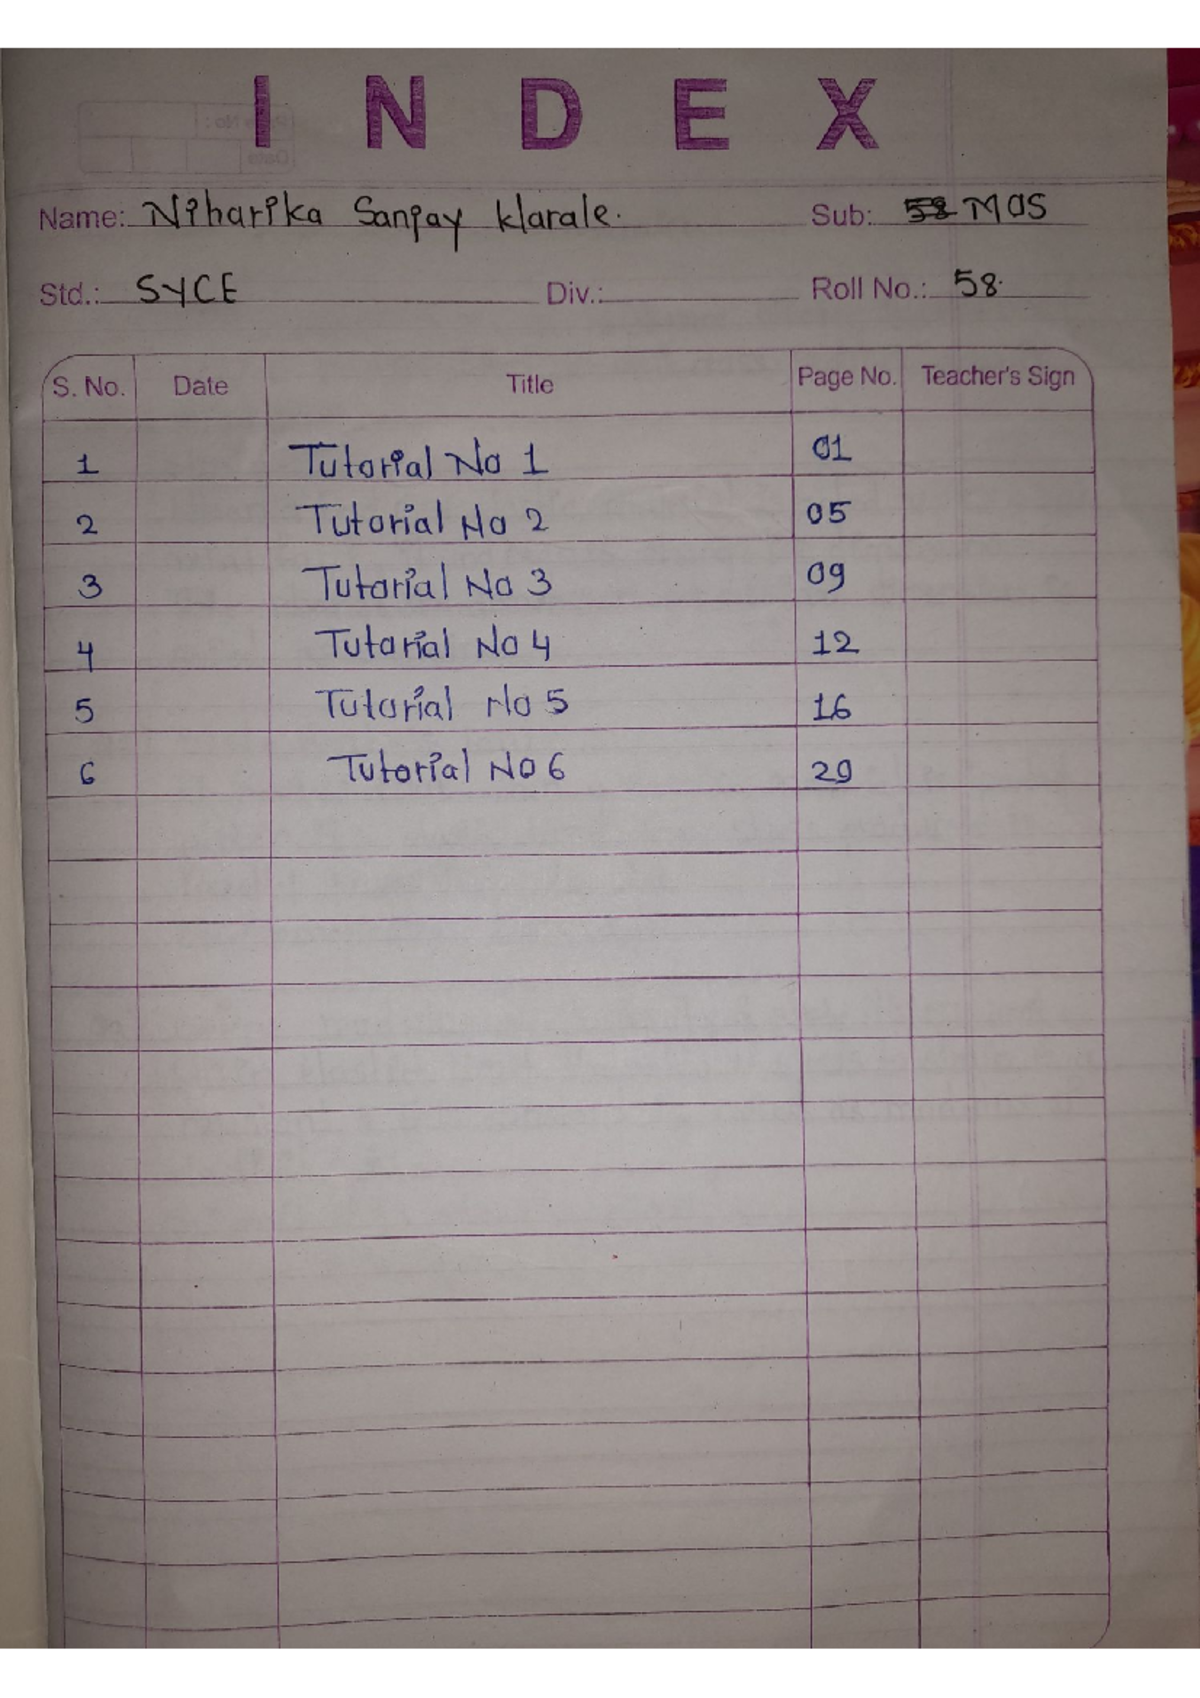 INDEX
Name: Niharika Sanjay Klarale. Sub: MOS
Std.: SYCE Div.: Roll No.: 58
S. No. Date Title Page No. Teacher's Sign
1 Tutorial No 1 01
2 Tutorial No 2 05
3 Tutorial No 3 09
4 Tutorial No 4 12
5 Tutorial No 5 16
6 Tutorial No 6 29